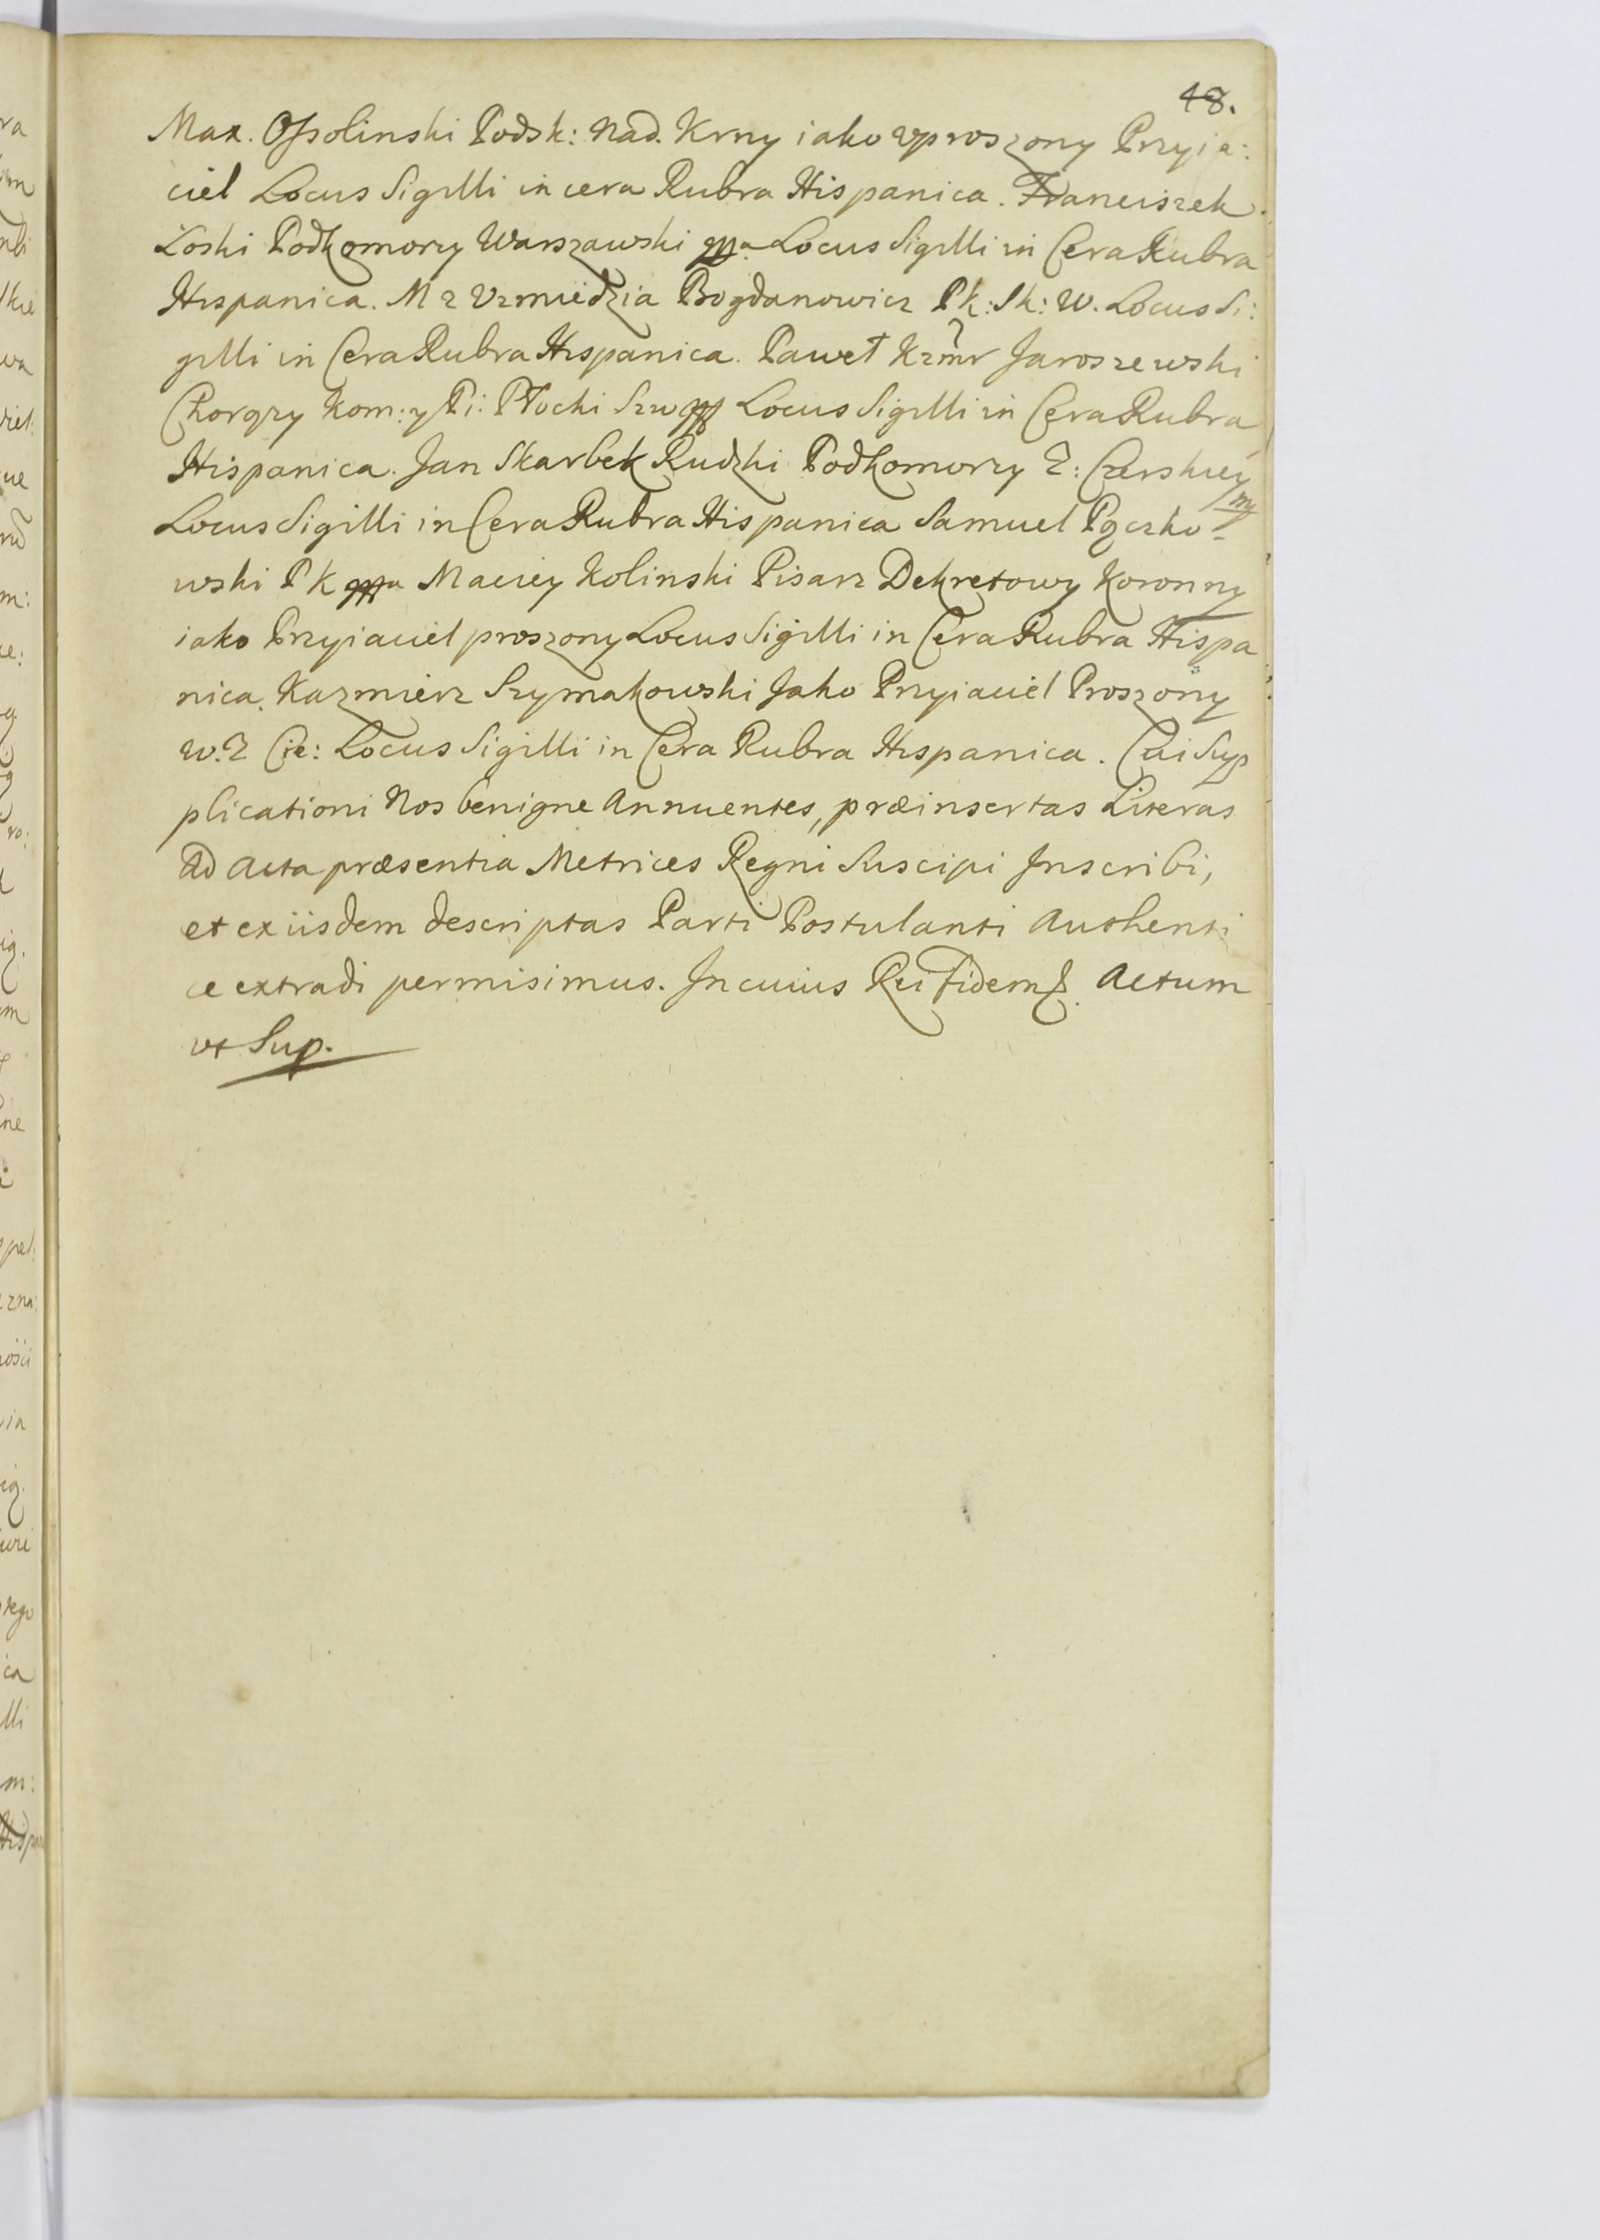 48.
Max. Ossolinski Podsk: Nad. Krny iako vproszony Przyia:
ciel Locus Sigilli in cera Rubra Hispanica. Franciszek
Łoski Podkomorzy Warszawski Locus Sigilli in Cera Rubra
Hispanica. M z Vzmiedzia Bogdanowicz P k: Sk: W. Locus Si:
gilli in Cera Rubra Hispanica. Paweł Kzmr Jaroszewski
Chorąży Kom: y Pi: Płocki Locus Sigilli in Cera Rubra
Hispanica. Jan Skarbek Rudzki Podkomorzy Z: Czerskiey
Locus Sigilli in Cera Rubra Hispanica Samuel Pączko-
wski P K Maciey Kolinski Pisarz Dekretowy Koronny
iako Przyiaciel proszony Locus Sigilli in Cera Rubra Hispa
nica. Kazmierz Szymakowski Jako Przyiaciel Proszony
w. Z Cie: Locus Sigilli in Cera Rubra Hispanica. Cui Sup
plicationi Nos benigne Annuentes, præinsertas Literas
Ad Acta præsentia Metrices Regni Suscipi Inscribi,
et ex iisdem descriptas Parti Postulanti Authenti
ce extradi permisimus. In cuius Rei fidem &. Actum
vt Sup.